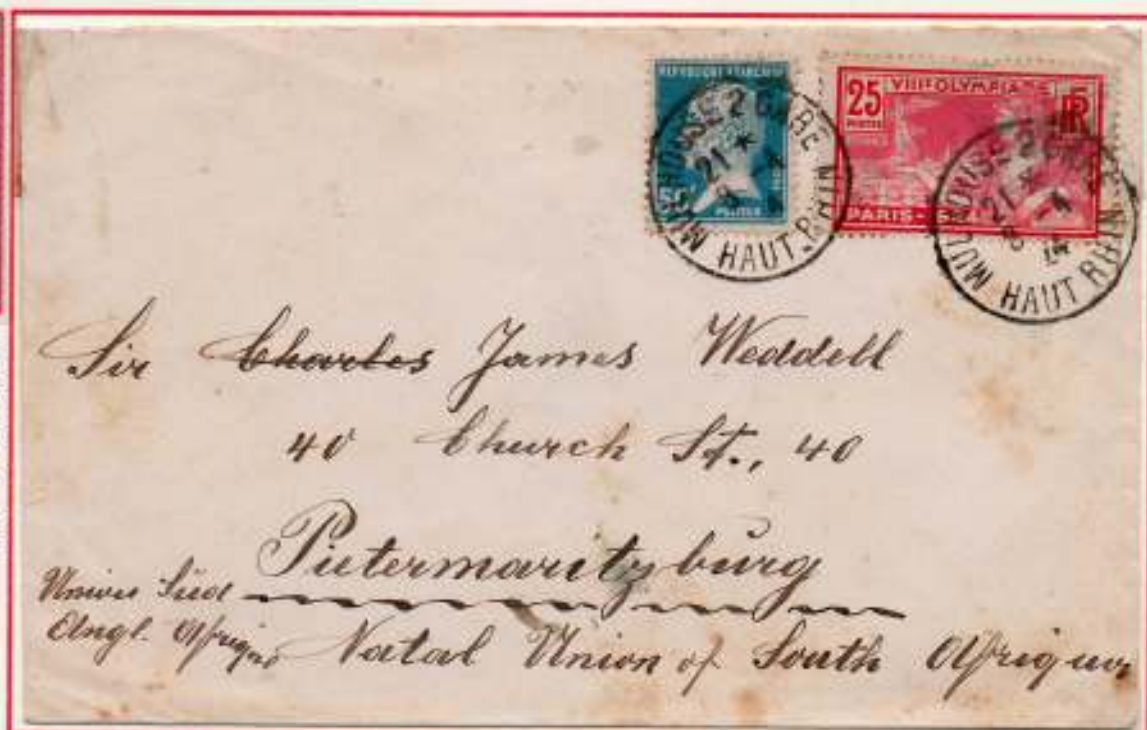 REPUBLIQUE FRANÇAISE
50
POSTES
MULHOUSE 2 GARE
21 *
HAUT-RHIN
25
POSTES
VIIIE OLYMPIADE
RF
PARIS-
MULHOUSE 2 GARE
21 *
8 -4
24
HAUT RHIN
Sir Charles James Weddell
40 Church St., 40
Pietermaritzburg
Union Süd
Engl. Afrique Natal Union of South Afrique